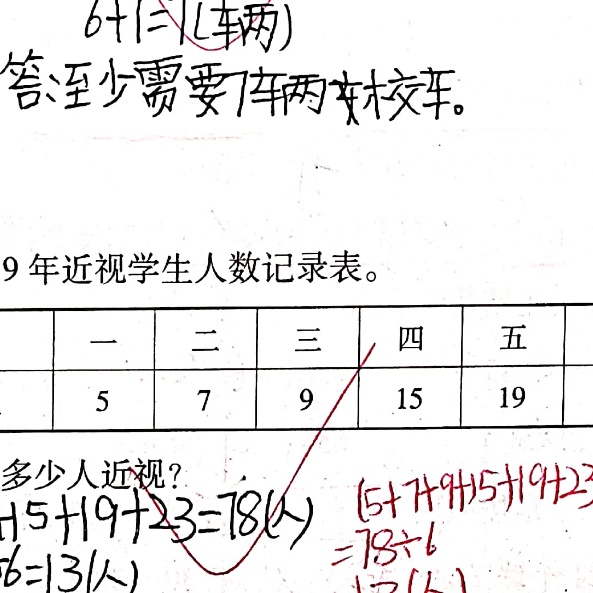 6+1=7(车两)
答:至少需要7车两校车。
9年近视学生人数记录表。
一 二 三 四 五
5 7 9 15 19
多少人近视?
+15+19+23=78(人)
(5+7+9+15+19+23
=78÷6
6=13(人)